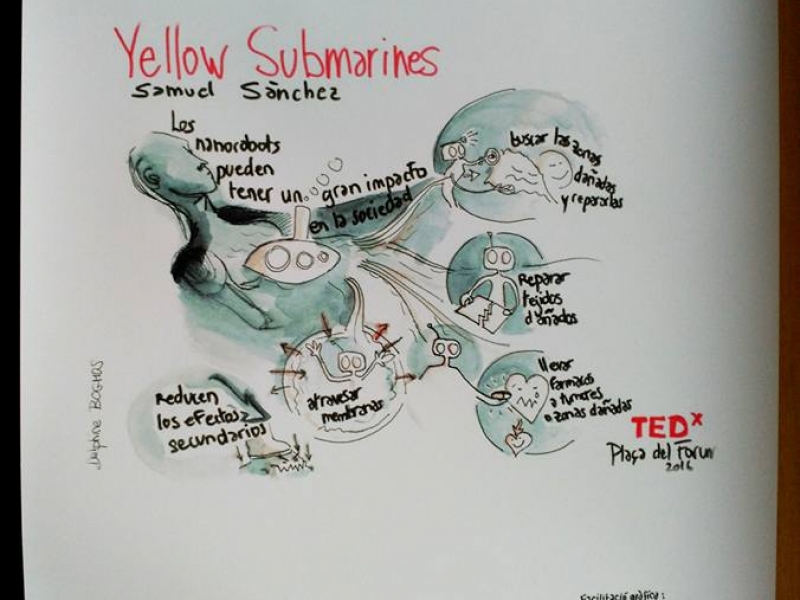 Yellow Submarines
Samuel Sànchez
Los
nanorobots
pueden
tener un gran impacto
en la sociedad
buscar las zonas
dañadas
y repararlas
Reparar
tejidos
dañados
llevar
farmacos
a tumores
o zonas dañadas
atravesar
membranas
Reducen
los efectos
secundarios
Delphine BOGHOS
TEDx
Plaça del Forum
2016
Facilitació gràfica: